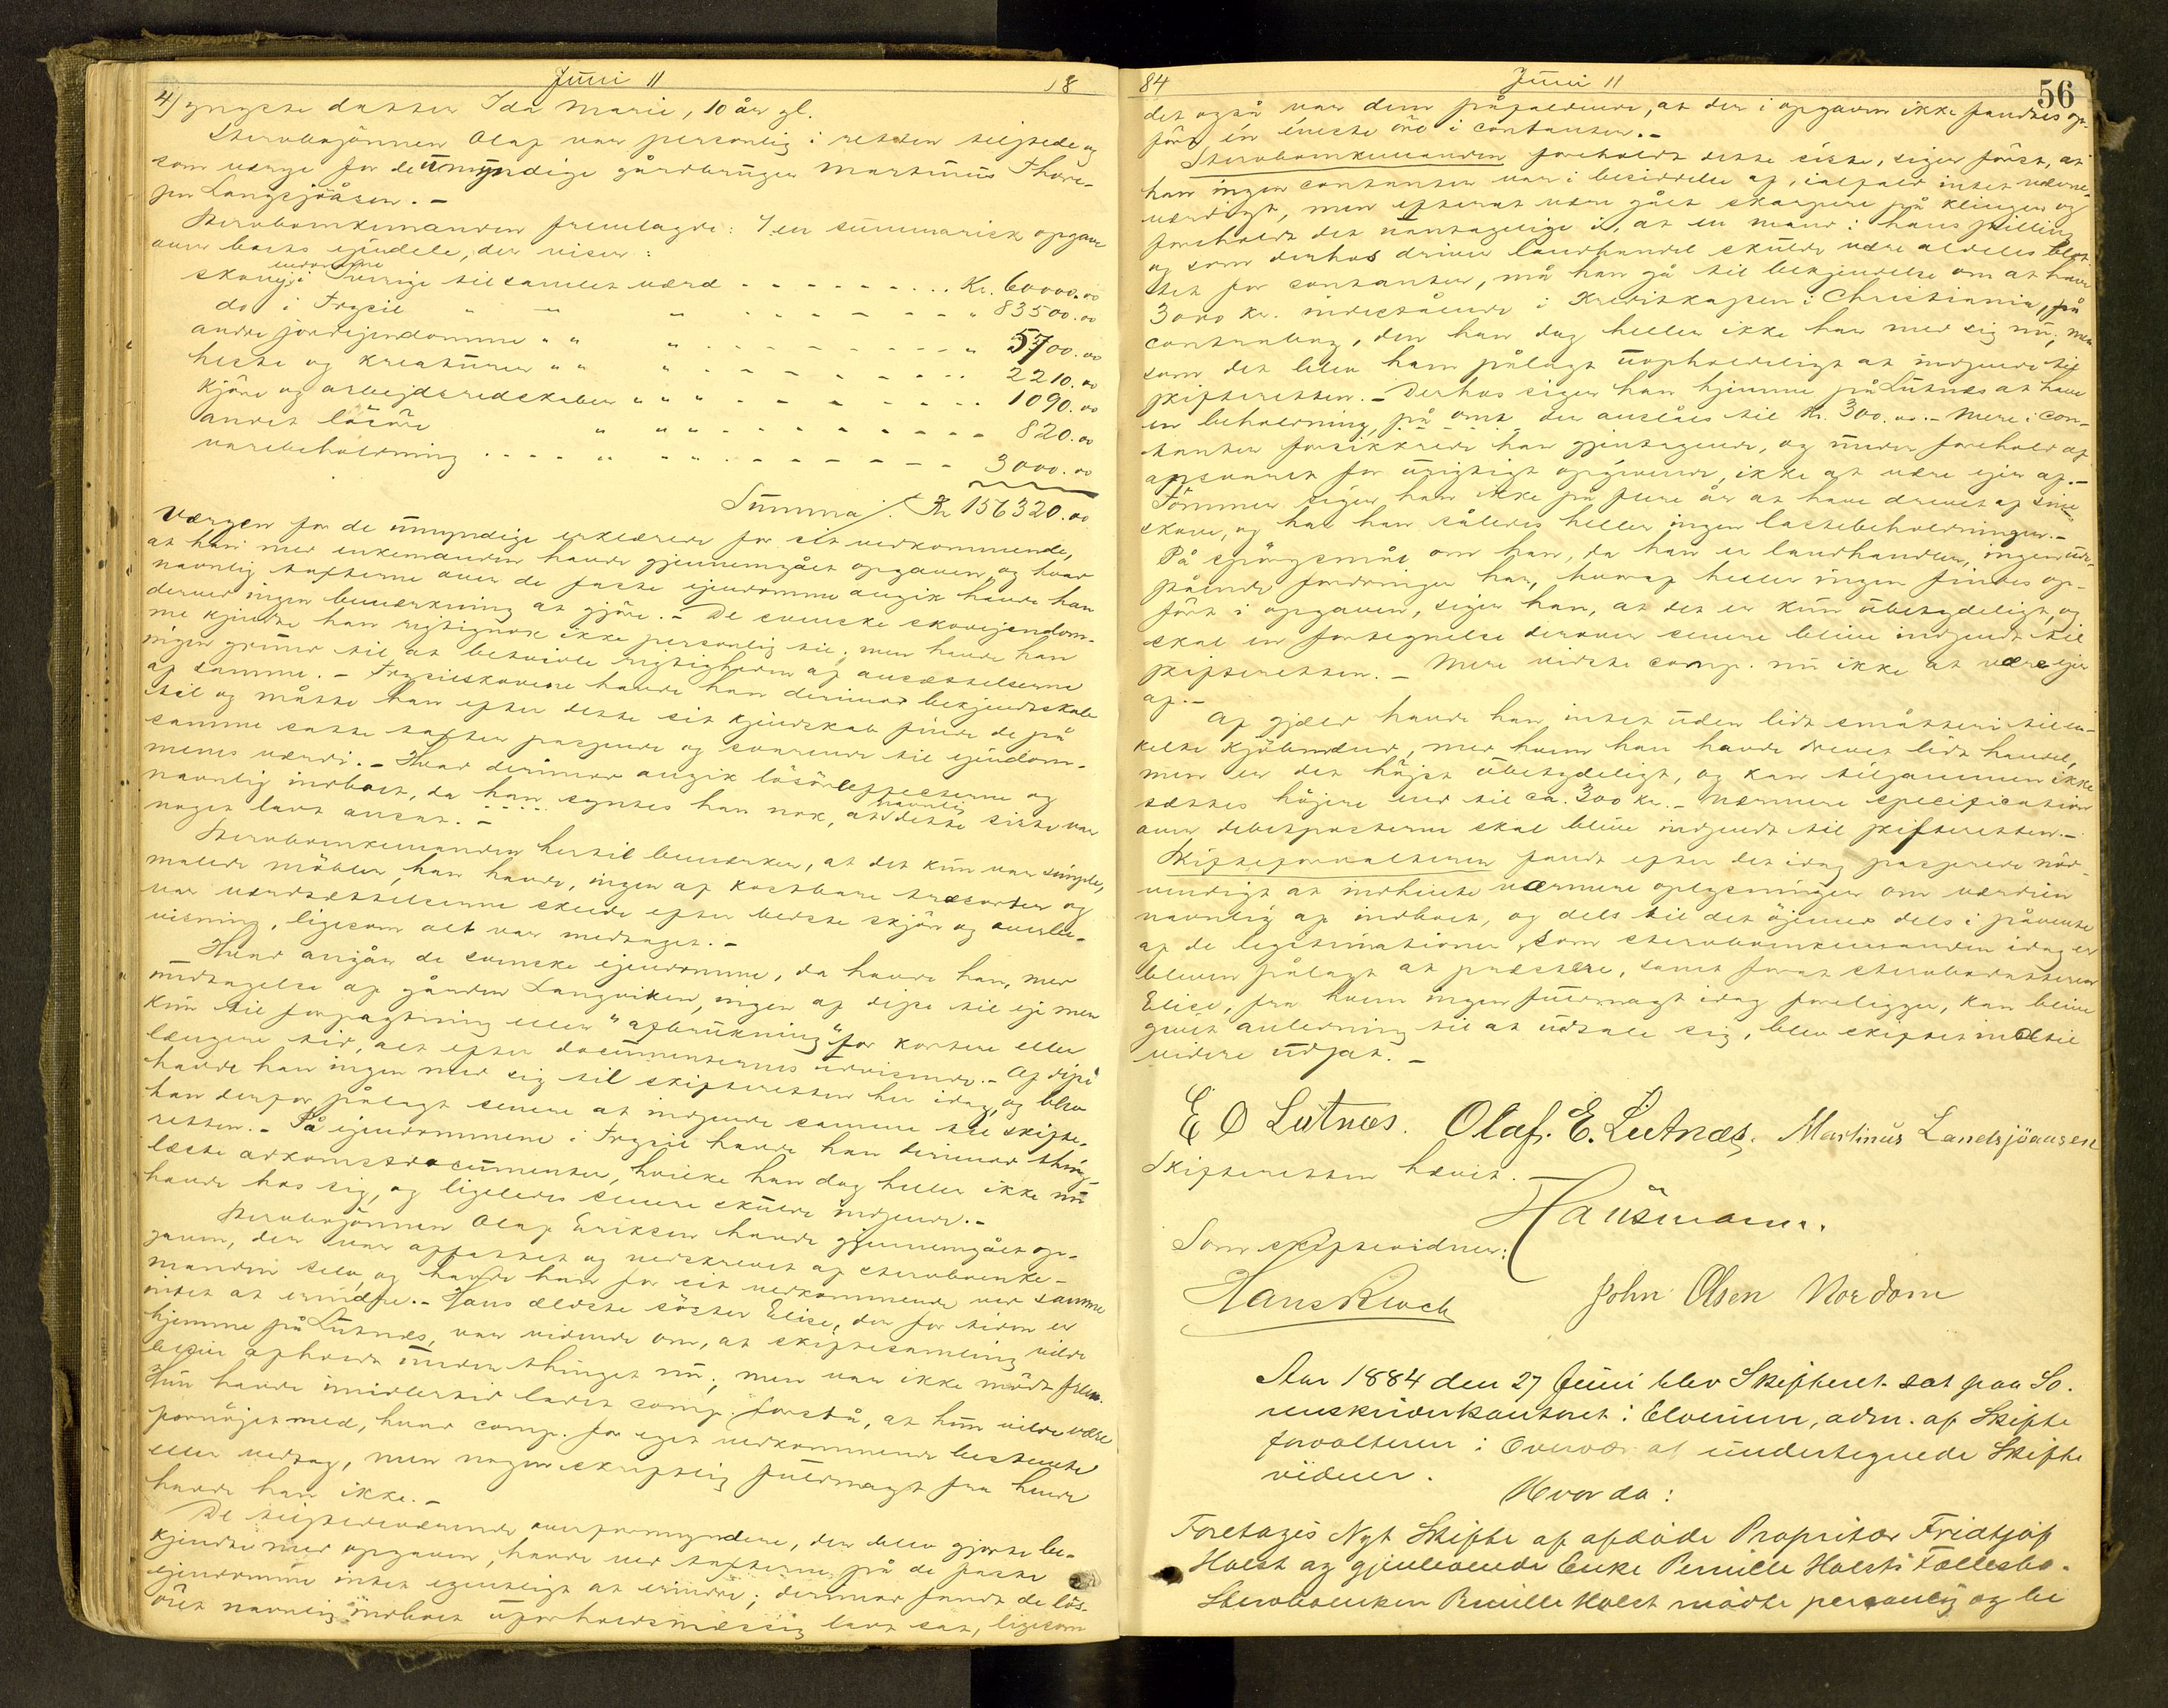 Juni 11
18
4) yngste datter Ida Marie, 10 år gl.
Stervbosönnen Olaf var personlig i retten tilstede og
som værge for de umyndige gårdbruger Martinus Thore-
sen Langsjöåsen. -
Stervboenkemanden fremlagde: 1 en summarisk opgave
over boets ejendele, der viser:
skoveiendomme i Sverige til samlet værd - - - Kr. 60000.00
do i Trysil " " " - - - " 83500.00
andre jordejendomme " " " - - - " 5700.00
heste og kreaturer " " " - - - 2210.00
Kjöre og arbejdsredskaber " " " - - - 1090.00
andet lösöre " " " - - - 820.00
varebeholdning - - - " " " - - - 3000.00
Summa ∕. Kr 156320.00
Værgen for de umyndige erklærede for sit vedkommende,
at han med enkemanden havde gjennemgået opgaven, og hvad
navnlig taxterne over de faste ejendomme angik havde han
derved ingen bemærkning at gjöre. - De svenske skovejendom-
me kjendte han rigtignok ikke personlig til, men havde han
ingen grund til at betvivle rigtigheden af ansættelserne
af samme. - Trysilskovene havde han derimod bekjendtskab
til og måtte han efter dette sit kjendskab finde de på
samme satte taxter passende og svarende til ejendom-
menes værdi. - Hvad derimod angik lösöreeffecterne og
navnlig indboet, da han syntes han nok, at navnlig dette sidste var
noget lavt ansat. -
Stervboenkemanden hertil bemærker, at det kun var simple,
malede möbler, han havde, ingen af kostbare træsorter og
var værdsættelserne skeede efter bedste skjön og overbe-
visning, ligesom alt var medtaget. -
Hvad angår de svenske ejendomme, da havde han, med
undtagelse af gården Langviken, ingen af disse til eje men
kun til forpagtning eller "afbrukning" for kortere eller
længere tid, alt efter documenternes udvisende. - Af disse
havde han ingen med sig til skifteretten her idag, og blev
han derfor pålagt senere at indsende samme til skifte-
retten. - På ejendommene i Trysil havde han derimod thing-
læste adkomstdocumenter, hvilke han dog heller ikke nu
havde hos sig, og ligeledes senere skulde indsende. -
Stervbosönnen Olaf Eriksen havde gjennemgået op-
gaven, der var affattet og nedskrevet af stervboenke-
manden selv, og havde han for sit vedkommende ved samme
intet at erindre. - Hans ældste söster Elise, der for tiden er
hjemme på Lutnes, var vidende om, at skiftesamling vilde
blive afholdt under thinget nu, men var ikke mödt frem.
Hun havde imidlertid ladet comp. forstå, at hun vilde være
fornöjet med, hvad comp. for eget vedkommende bestemte
eller vedtog, men nogen skriftlig fuldmagt fra hende
havde han ikke. -
De tilstedeværende overformyndere, der blev gjorte be-
kjendte med opgaven, havde ved taxterne på de faste
ejendomme intet egentligt at erindre; derimod fandt de lös-
öret navnlig indboet uforholdsmæssig lavt sat, ligesom
84
Juni 11
56
det også var dem påfaldende, at der i opgaven ikke fandtes op-
fört én eneste öre i contanter. -
Stervboenkemanden foreholdt dette sidste, siger först, at
han ingen contanter var i besiddelse af, ialfald intet nævne-
værdigt, men efterat være gået skarpere på klingen og
foreholdt det uantagelige i, at en mand i hans stilling
og som derhos driver landhandel skulde være aldeles blot-
tet for contanter, må han gå til bekjendelse om at have
3000 Kr. indestående i Kreditkassen i Christiania, på
contrabog, den han dog heller ikke har med sig nu, men
som det blev ham pålagt uopholdeligt at indsende til
skifteretten. - Derhos siger han hjemme på Lutnes at have
en beholdning på omt. der anslåes til Kr. 300.00. - Mere i con-
tanter forsikkrede han gjentagende, og under forehold af
ansvaret for urigtigt opgivende, ikke at være ejer af. -
Tömmer siger han ikke på flere år at have drevet af sine
skove, og har han således heller ingen lastebeholdninger. -
På spörgsmål om han, da han er landhandler, ingen ude-
stående fordringer har, hvoraf heller ingen findes op-
fört i opgaven, siger han, at det er kun ubetydeligt, og
skal en fortegnelse derover senere blive indsendt til
skifteretten. - Mere vidste comp. nu ikke at være ejer
af. -
Af gjæld havde han intet uden lidt småtteri til en-
kelte kjöbmænd, med hvem han havde drevet lidt handel,
men er det höjst ubetydeligt, og kan tilsammen ikke
sættes höjere end til ca. 300 kr. - Nærmere specification
over debetposterne skal blive indsendt til skifteretten. -
Skifteforvalteren fandt efter det idag passerede nöd-
vendigt at indhente nærmere oplysninger om værdien
navnlig af indboet, og dels til det öjemed dels i påvente
af de legitimationer, som stervboenkemanden idag er
bleven pålagt at præstere, samt forat stervbodatteren
Elise, fra hvem ingen fuldmagt idag foreligger, kan blive
givet anledning til at udtale sig, blev skiftet indtil
videre udsat. -
E O Lutnæs. Olaf. E. Lutnæs. Martinus Landsjöaasen
Skifteretten hævet. -
Hausmann.
Som skiftevidner:
Hans Roch John Olsen Nordom
Aar 1884 den 27 Juni blev Skifteret sat paa So-
renskriverkontoret i Elverum, adm. af Skifte
forvalteren i Overvær af undertegnede Skifte
vidner.
Hvorda:
Foretoges Nyt Skifte af afdöde Propritær Fridtjof
Holst og gjenlevende Enke Pernille Holsts Fællesbo.
Stervboenken Pernille Holst mödte personlig og be